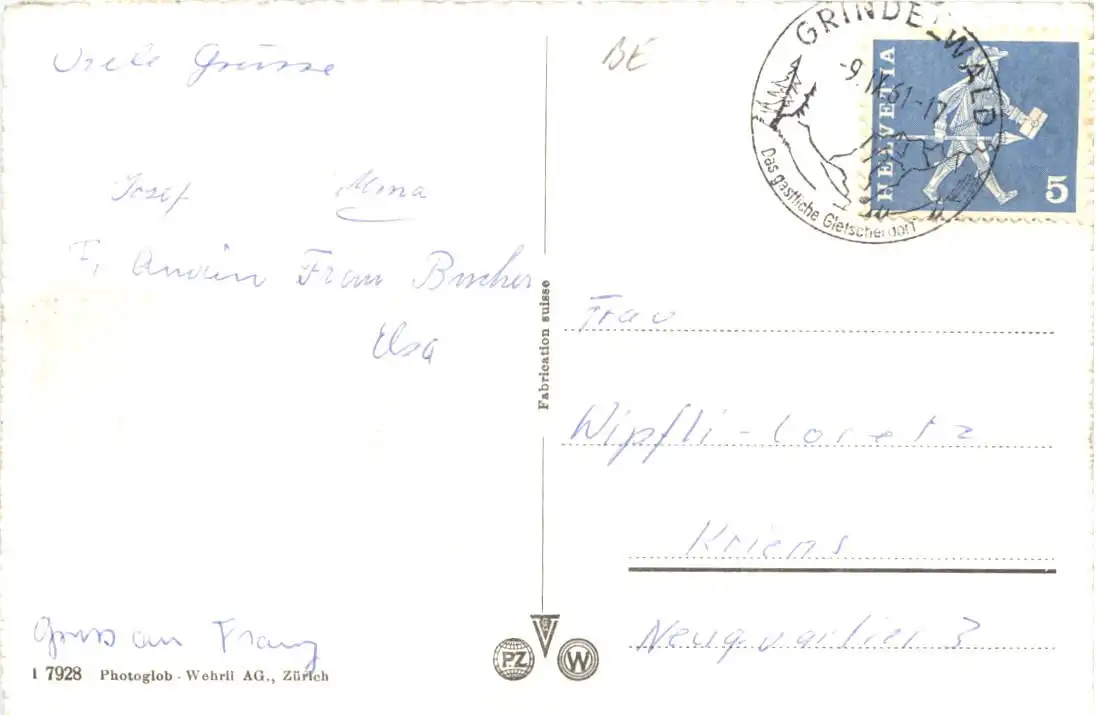 Viele Grüsse
Josef Mina
Frau Bucher
Elsa
Gruss an Franz
1 7928 Photoglob - Wehrli AG., Zürich
Fabrication suisse
PZ
W
BE
GRINDELWALD
-9.IX.61-17
Das gastliche Gletscherdorf
HELVETIA
5
Frau
Wipfli-Loretz
Kriens
Neuquartier 3